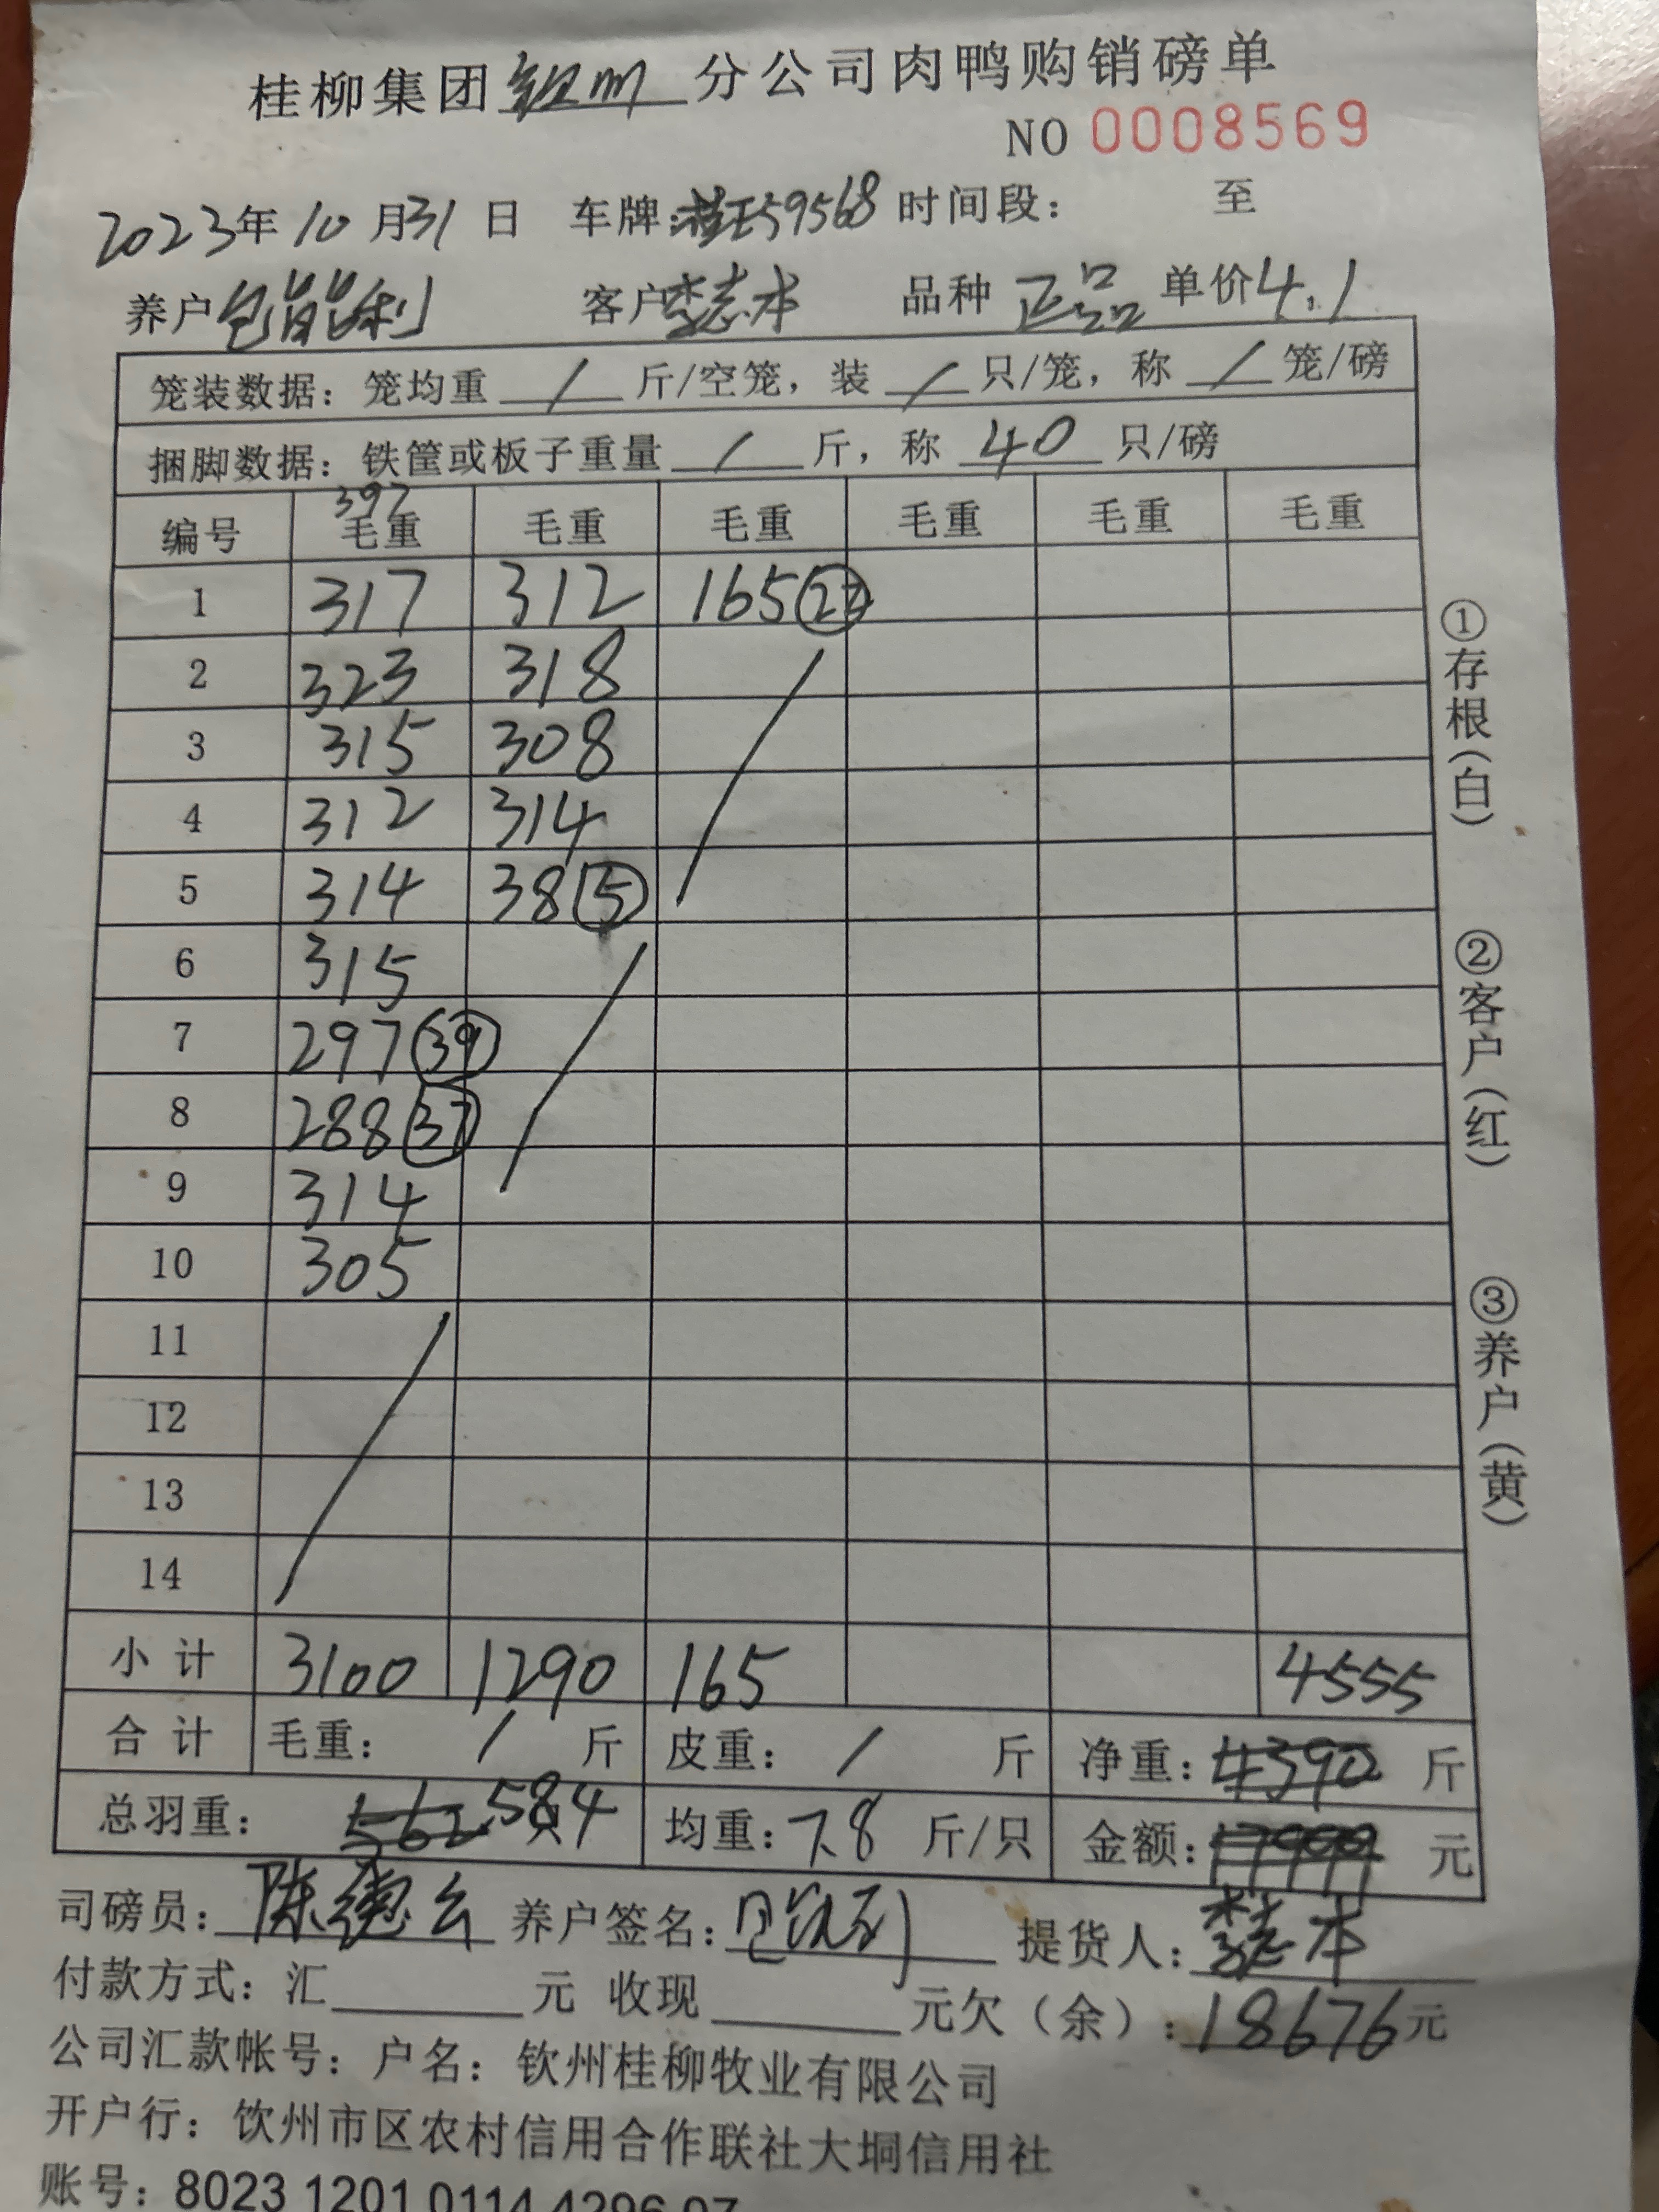 桂柳集团钦州分公司肉鸭购销磅单
NO 0008569
2023年10月31日 车牌:桂E59568 时间段: 至
养户 客户李志本 品种 正品 单价4.1
笼装数据: 笼均重 / 斤/空笼, 装 / 只/笼, 称 / 笼/磅
捆脚数据: 铁筐或板子重量 / 斤, 称 40 只/磅
397
编号 毛重 毛重 毛重 毛重 毛重 毛重
1 317 312 165 22
2 323 318
3 315 308
4 312 314
5 314 38 5
6 315
7 297 39
8 288 37
9 314
10 305
11
12
13
14
小计 3100 1290 165 4555
合计 毛重: / 斤 皮重: / 斤 净重: 4390 斤
总羽重: 562 584 只 均重: 7.8 斤/只 金额: 元
司磅员: 陈德云 养户签名: 提货人: 李志本
付款方式: 汇 元 收现 元欠(余): 18676元
公司汇款帐号: 户名: 钦州桂柳牧业有限公司
开户行: 钦州市区农村信用合作联社大垌信用社
账号: 8023 1201 0114 4296 07
①存根(白)
②客户(红)
③养户(黄)